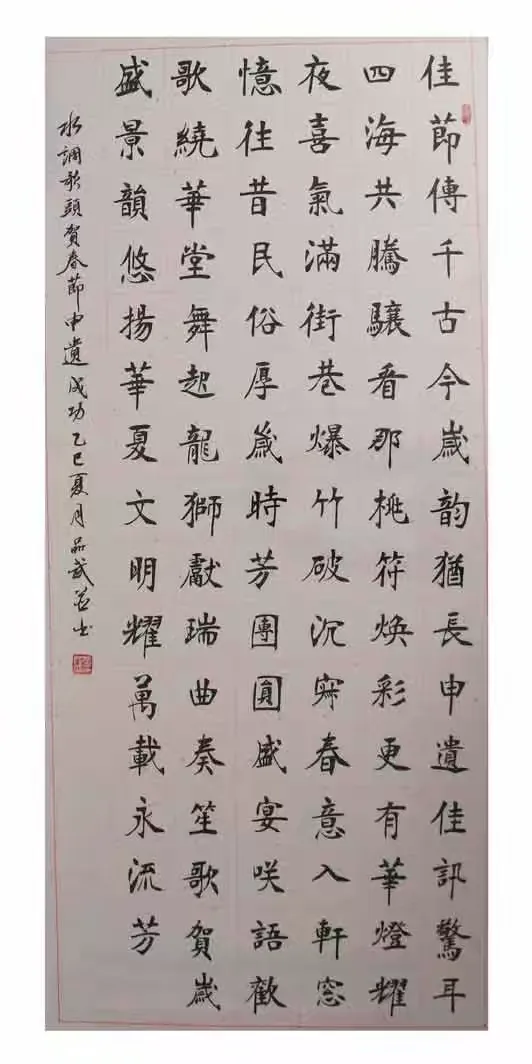 佳節傳千古今歲韵猶長申遺佳訊驚耳
四海共騰驤看那桃符焕彩更有華燈耀
夜喜氣滿街巷爆竹破沉寂春意入軒窓
憶往昔民俗厚歲時芳團圓盛宴咲語歡
歌繞華堂舞起龍獅獻瑞曲奏笙歌賀歲
盛景韻悠揚華夏文明耀萬載永流芳
水調歌頭賀春節申遺成功乙巳夏月品武书